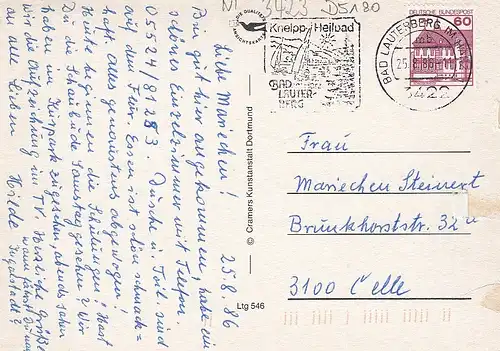 Nr 3423 D5180
DIE QUALITÄTS
ANSICHTSKARTE
Kneipp-Heilbad
BAD
LAUTER-
BERG
BAD LAUTERBERG IM HARZ
25.8.86
3422
DEUTSCHE BUNDESPOST
60
25.8.86
Liebe Mariechen!
Bin gut hier angekommen, habe ein
schönes Einzelzimmer mit Telefon.
05524/81283. Dusche u. Toil. sind
auf dem Flur. Essen ist schon schmack=
haft. Alles genauestens abgewogen!
Heute beginnen die Schulungen! Hast
Du die Schaubude Samstag gesehen? Wir
haben im Kurpark zugesehen, abends sahen
wir die Aufzeichnung im TV. Herzliche Grüße
an die Lieben Hilde
wann fährst Du nach
Ingolstadt?
© Cramers Kunstanstalt Dortmund
Ltg 546
Frau
Mariechen Steinert
Brunkhorststr. 32
3100 Celle